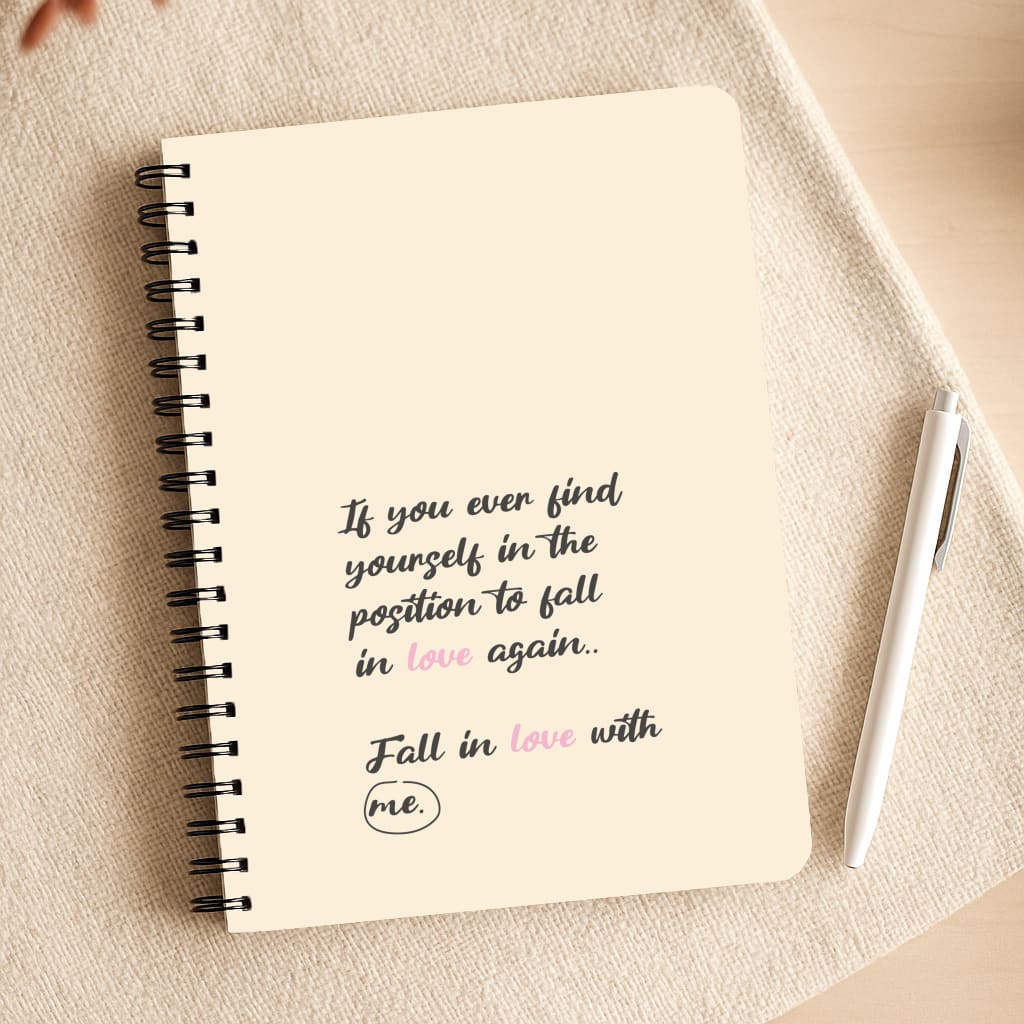 If you ever find
yourself in the
position to fall
in love again..
Fall in love with
me.